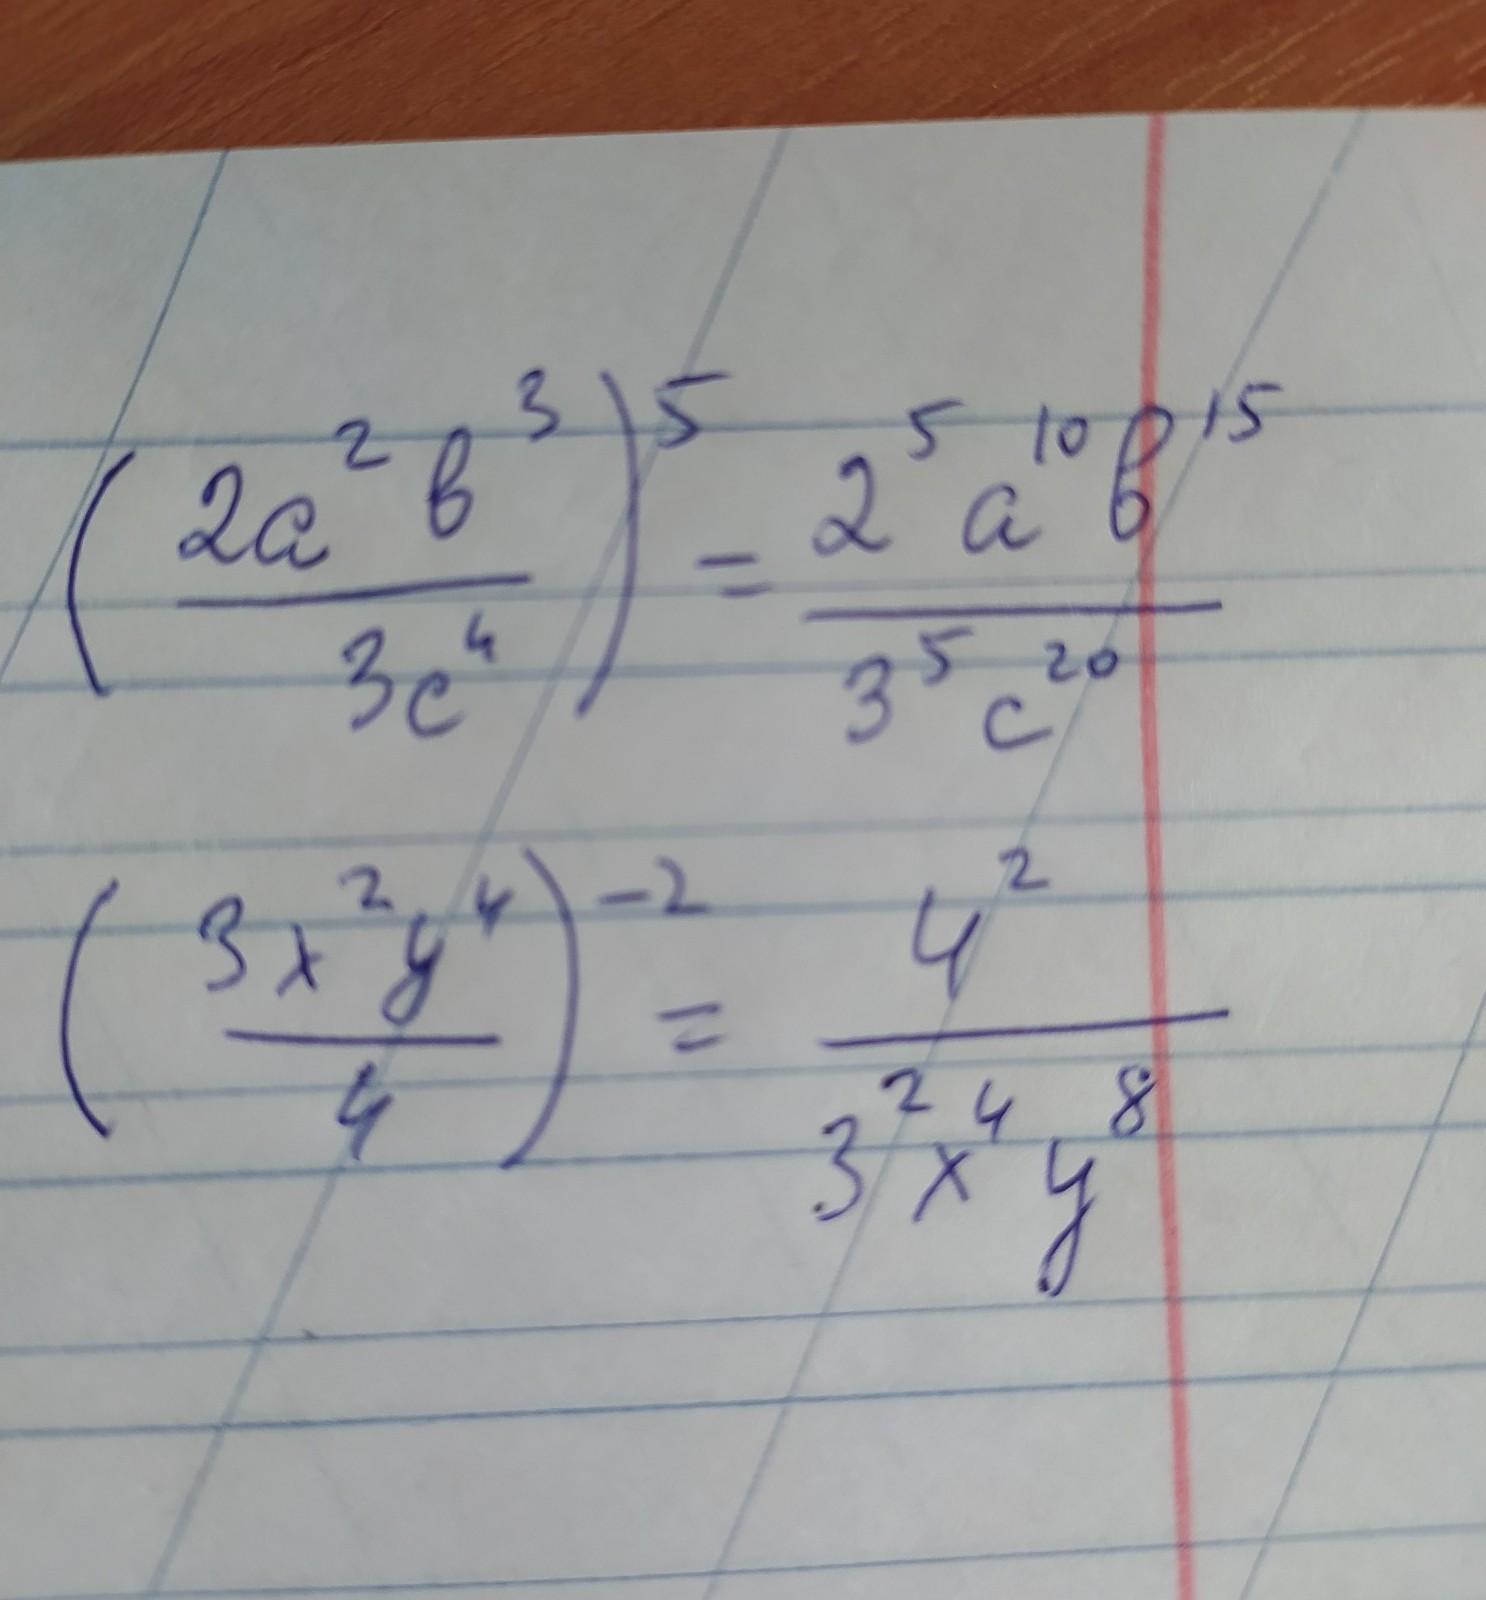 (2a²b³ / 3c⁴)⁵ = 2⁵a¹⁰b¹⁵ / 3⁵c²⁰
(3x²y⁴ / 4)⁻² = 4² / 3²x⁴y⁸